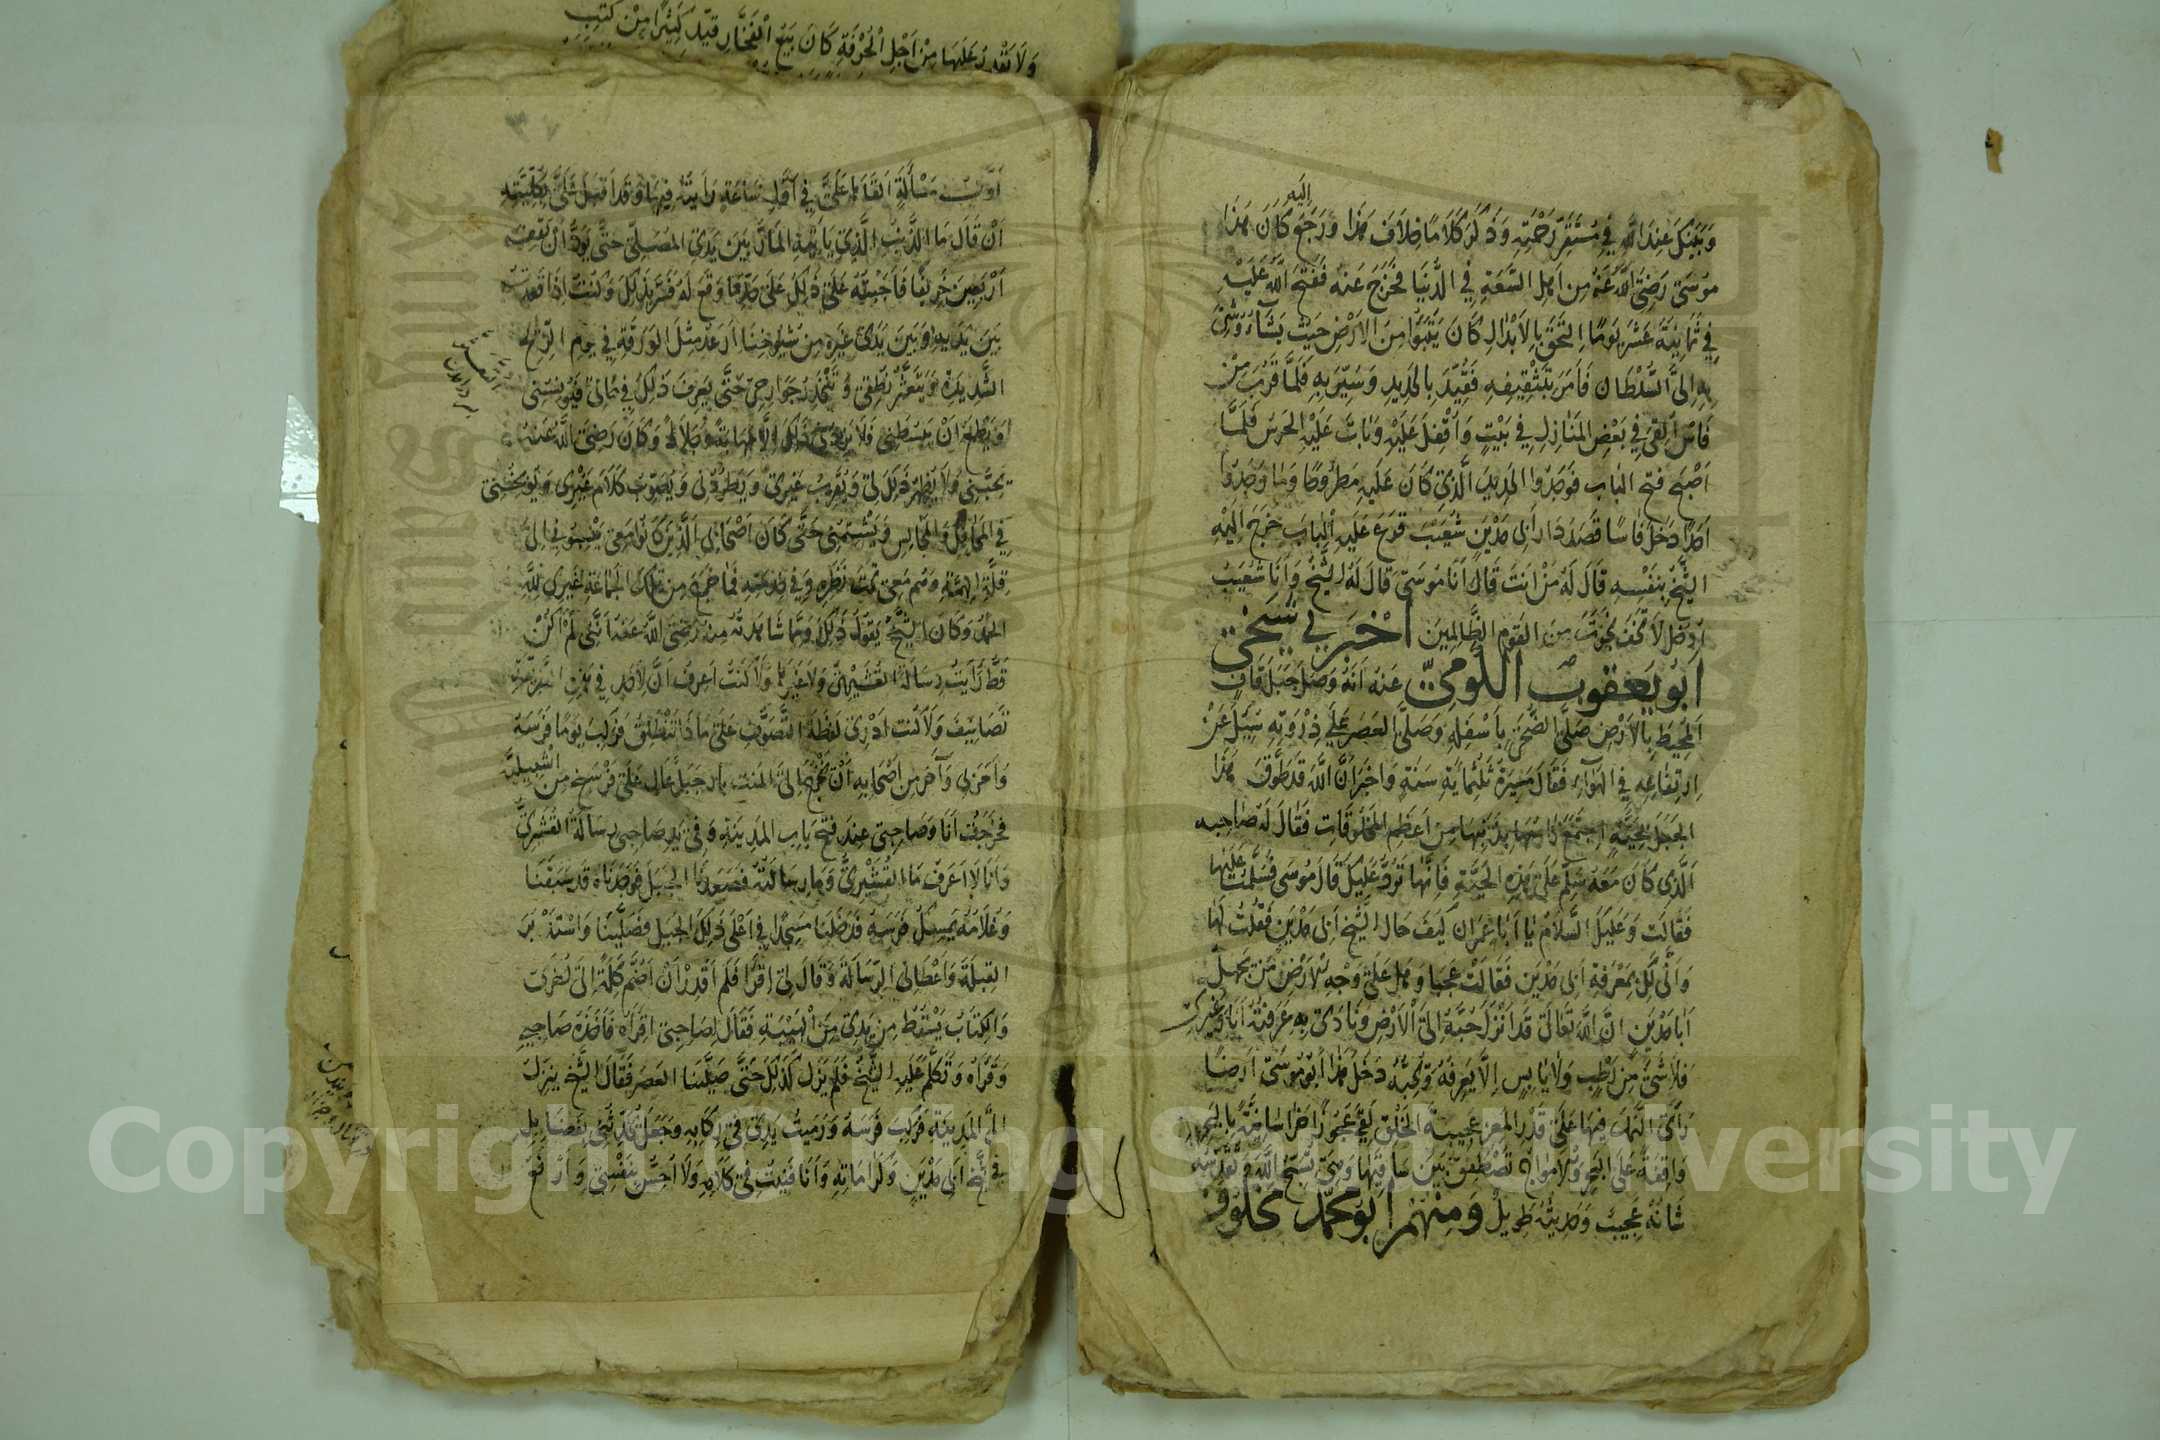 وَلَا تَقْدِرُ عَلَيْهَا مِنْ اَجْلِ الْحُرْقَةِ كَانَ بَيْعَ الْفَخَّارِ قَيَّدَ كَثِيْرًا مِنْ كُتُبِ
وَبَيْنَكَ عِنْدَ اللّٰهِ فِي مُسْتَقَرِّ رَحْمَتِهِ وَذَكَرَ كَلَامًا خِلَافَ هَذَا وَرَجَعَ اِلَيهِ كَانَ هَذَا
مُوسَى رَضِيَ اللّٰهُ عَنْهُ مِنْ اَهْلِ السَّعَةِ فِي الدُّنْيَا فَخَرَجَ عَنْهُ فَفَتَحَ اللّٰهُ عَلَيْهِ
فِي ثَمَانِيَةَ عَشَرَ يَوْمًا اِلْتَحَقَ بِالْاَبْدَالِ كَانَ يَتَبَوَّأُ مِنَ الْاَرْضِ حَيْثُ يَشَاءُ وَشِيَ
بِهِ اِلَى السُّلْطَانِ فَاَمَرَ بِتَثْقِيفِهِ فَقُيِّدَ بِالْحَدِيدِ وَسِيْرَ بِهِ فَلَمَّا قَرُبَ مِنْ
فَاسَ اُلْقِيَ فِي بَعْضِ الْمَنَازِلِ فِي بَيْتٍ وَاُقْفِلَ عَلَيْهِ وَبَاتَ عَلَيْهِ الْحَرَسُ فَلَمَّا
اَصْبَحَ فُتِحَ الْبَابُ فَوَجَدُوا الْحَدِيدَ الَّذِي كَانَ عَلَيْهِ مَطْرُوحًا وَمَا وَجَدُوا
اَحَدًا دَخَلَ فَاسًا قَصَدَ دَارَ اَبِي مَدْيَنَ شُعَيْبَ قَرَعَ عَلَيْهِ الْبَابَ خَرَجَ اِلَيْهِ
الشَّيْخُ بِنَفْسِهِ قَالَ لَهُ مَنْ اَنْتَ قَالَ اَنَا مُوسَى قَالَ لَهُ الشَّيْخُ وَاَنَا شُعَيْبُ
اُدْخُلْ لَا تَخَفْ نَجَوْتَ مِنَ الْقَوْمِ الظَّالِمِينَ اَخْبَرَنِي شَيْخِي
اَبُو يَعْقُوبَ الْكُومِيُّ عَنْهُ اَنَّهُ وَصَلَ جَبَلَ قَافٍ
الْمُحِيْطَ بِالْاَرْضِ صَلَّى الضُّحَى بِاَسْفَلِهِ وَصَلَّى الْعَصْرَ عَلَى ذِرْوَتِهِ سُئِلَ عَنْ
اِرْتِفَاعِهِ فِي الْهَوَاءِ فَقَالَ مَسِيْرَةَ ثَلٰثُمِائَةِ سَنَةٍ وَاَخْبَرَ اَنَّ اللّٰهَ قَدْ طَوَّقَ هَذَا
الْجَبَلَ بِحَيَّةٍ اِجْتَمَعَ رَاسُهَا بِذَنَبِهَا مِنْ اَعْظَمِ الْمَخْلُوقَاتِ فَقَالَ لَهُ صَاحِبُهُ
الَّذِي كَانَ مَعَهُ سَلِّمْ عَلَى هَذِهِ الْحَيَّةِ فَاِنَّهَا تَرُدُّ عَلَيْكَ قَالَ مُوسَى فَسَلَّمْتُ عَلَيْهَا
فَقَالَتْ وَعَلَيْكَ السَّلَامُ يَا اَبَا عِمْرَانَ كَيْفَ حَالُ الشَّيْخِ اَبِي مَدْيَنَ فَقُلْتُ لَهَا
وَاَنَّى لَكِ بِمَعْرِفَةِ اَبِي مَدْيَنَ فَقَالَتْ عَجَبًا وَهَلْ عَلَى وَجْهِ الْاَرْضِ مَنْ يَجْهَلُ
اَبَا مَدْيَنَ اِنَّ اللّٰهَ تَعَالَى قَدْ اَنْزَلَ حُبَّهُ اِلَى الْاَرْضِ وَنَادَى بِهِ عَرَفْتُهُ اَنَا وَغَيْرِي
فَلَا شَيْءَ مِنْ رَطْبٍ وَلَا يَابِسٍ اِلَّا يَعْرِفُهُ وَيُحِبُّهُ دَخَلَ هَذَا اَبُو مُوسَى اَرْضًا
رَأَى النَّمْلَ فِيهَا عَلَى قَدْرِ الْمَعْزِ عَجِيبَةَ الْخَلْقِ لَقِيَ عَجُوزًا خُرَاسَانِيَّةً بِالْبَحْرِ
وَاقِفَةً عَلَى الْبَحْرِ وَالْاَمْوَاجُ تَصْطَفِقُ بَيْنَ سَاقَيْهَا وَهِيَ تُسَبِّحُ اللّٰهَ وَتُقَدِّسُهُ
شَانُهُ عَجِيبٌ وَحَدِيثُهُ طَوِيلٌ وَمِنْهُمْ اَبُو مُحَمَّدٍ مَخْلُوفُ
مَسْأَلَةٍ اَلْقَاهَا عَلَيَّ فِي اَوَّلِ سَاعَةٍ رَاَيْتُهُ فِيهَا وَقَدْ اَقْبَلَ عَلَيَّ بِكُلِّيَّتِهِ
اَنْ قَالَ مَا الذَّنْبُ الَّذِي يَأْتِيهِ الْمَارُّ بَيْنَ يَدَيِ الْمُصَلِّي حَتَّى يَوَدُّ اَنْ يَقِفَ
اَرْبَعِينَ خَرِيفًا فَاَجَبْتُهُ عَلَى ذَلِكَ عَلَى حَدِّ مَا وَقَعَ لَهُ فَسُرَّ بِذَلِكَ وَكُنْتُ اِذَا قَعَدْتُ
بَيْنَ يَدَيْهِ وَبَيْنَ يَدَيْ غَيْرِهِ مِنْ شُيُوخِنَا اُرْعَدُ مِثْلَ الْوَرَقَةِ فِي يَوْمِ الرِّيحِ
الشَّدِيدَةِ وَيَتَغَيَّرُ نُطْقِي وَتَتَخَدَّرُ جَوَارِحِي حَتَّى يُعْرَفَ ذَلِكَ فِي حَالِي فَيُؤْنِسُنِي
وَيَطْمَعُ اَنْ يَبْسُطَنِي فَلَا يَزِيدُنِي ذَلِكَ اِلَّا مَهَابَةً وَجَلَالَةً وَكَانَ رَضِيَ اللّٰهُ عَنْهُ
يُحِبُّنِي وَلَا يُظْهِرُ ذَلِكَ لِي وَيُقَرِّبُ غَيْرِي وَيَطْرُدُنِي وَيُصَوِّبُ كَلَامَ غَيْرِي وَيُوَبِّخُنِي
فِي الْمَحَافِلِ وَالْمَجَالِسِ وَيَشْتِمُنِي حَتَّى كَانَ اَصْحَابِي الَّذِينَ كَانُوا مَعِي يَنْسِبُونِي اِلَى
قِلَّةِ الْهِمَّةِ وَهُمْ مَعِي تَحْتَ نَظَرِهِ وَفِي خِدْمَتِهِ فَمَا خَرَجَ مِنْ تِلْكَ الْجَمَاعَةِ غَيْرِي لِلّٰهِ
الْحَمْدُ وَكَانَ الشَّيْخُ يَقُولُ ذَلِكَ وَمِمَّا شَاهَدْتُهُ مِنْهُ رَضِيَ اللّٰهُ عَنْهُ اَنَّنِي لَمْ اَكُنْ
قَطُّ رَاَيْتُ رِسَالَةَ الْقُشَيْرِيِّ وَلَا غَيْرِهِ وَلَا كُنْتُ اَعْرِفُ اَنَّ لِاَحَدٍ فِي هَذِهِ الطَّرِيقَةِ
تَصَانِيفَ وَلَا كُنْتُ اَدْرِي لَفْظَةَ التَّصَوُّفِ عَلَى مَاذَا تَنْطَلِقُ فَرَكِبَ يَوْمًا فَرَسَهُ
وَاَمَرَنِي وَآخَرَ مِنْ اَصْحَابِهِ اَنْ نَخْرُجَ اِلَى الْمُنْتِيَارِ جَبَلٌ عَالٍ عَلَى فَرْسَخٍ مِنِ اشْبِيلِيَّةَ
فَخَرَجْتُ اَنَا وَصَاحِبِي عِنْدَ فَتْحِ بَابِ الْمَدِينَةِ وَفِي يَدِ صَاحِبِي رِسَالَةُ الْقُشَيْرِيِّ
وَاَنَا لَا اَعْرِفُ مَا الْقُشَيْرِيُّ وَمَا رِسَالَتُهُ فَصَعِدْنَا الْجَبَلَ فَوَجَدْنَاهُ قَدْ سَبَقَنَا
وَغُلَامُهُ يُمْسِكُ فَرَسَهُ فَدَخَلْنَا مَسْجِدًا فِي اَعْلَى ذَلِكَ الْجَبَلِ فَصَلَّيْنَا وَاسْتَدْبَرَ
الْقِبْلَةَ وَاَعْطَانِي الرِّسَالَةَ وَقَالَ لِي اِقْرَأْ فَلَمْ اَقْدِرْ اَنْ اَضُمَّ كَلِمَةً اِلَى اُخْرَى
وَالْكِتَابُ يَسْقُطُ مِنْ يَدِي مِنَ الْهَيْبَةِ فَقَالَ لِصَاحِبِي اِقْرَاْهُ فَاَخَذَهُ صَاحِبِي
وَقَرَاَهُ وَتَكَلَّمَ عَلَيْهِ الشَّيْخُ فَلَمْ يَزَلْ كَذَلِكَ حَتَّى صَلَّيْنَا الْعَصْرَ فَقَالَ الشَّيْخُ نَنْزِلُ
اِلَى الْمَدِينَةِ فَرَكِبَ فَرَسَهُ وَرَمَيْتُ يَدِي فِي رِكَابِهِ وَجَعَلَ يُحَدِّثُنِي بِفَضَائِلِ
الشَّيْخِ اَبِي مَدْيَنَ وَكَرَامَاتِهِ وَاَنَا فَنِيتُ فِي كَلَامِهِ وَلَا اُحِسُّ بِنَفْسِي وَاَرْفَعُ
Copyright © King Saud University